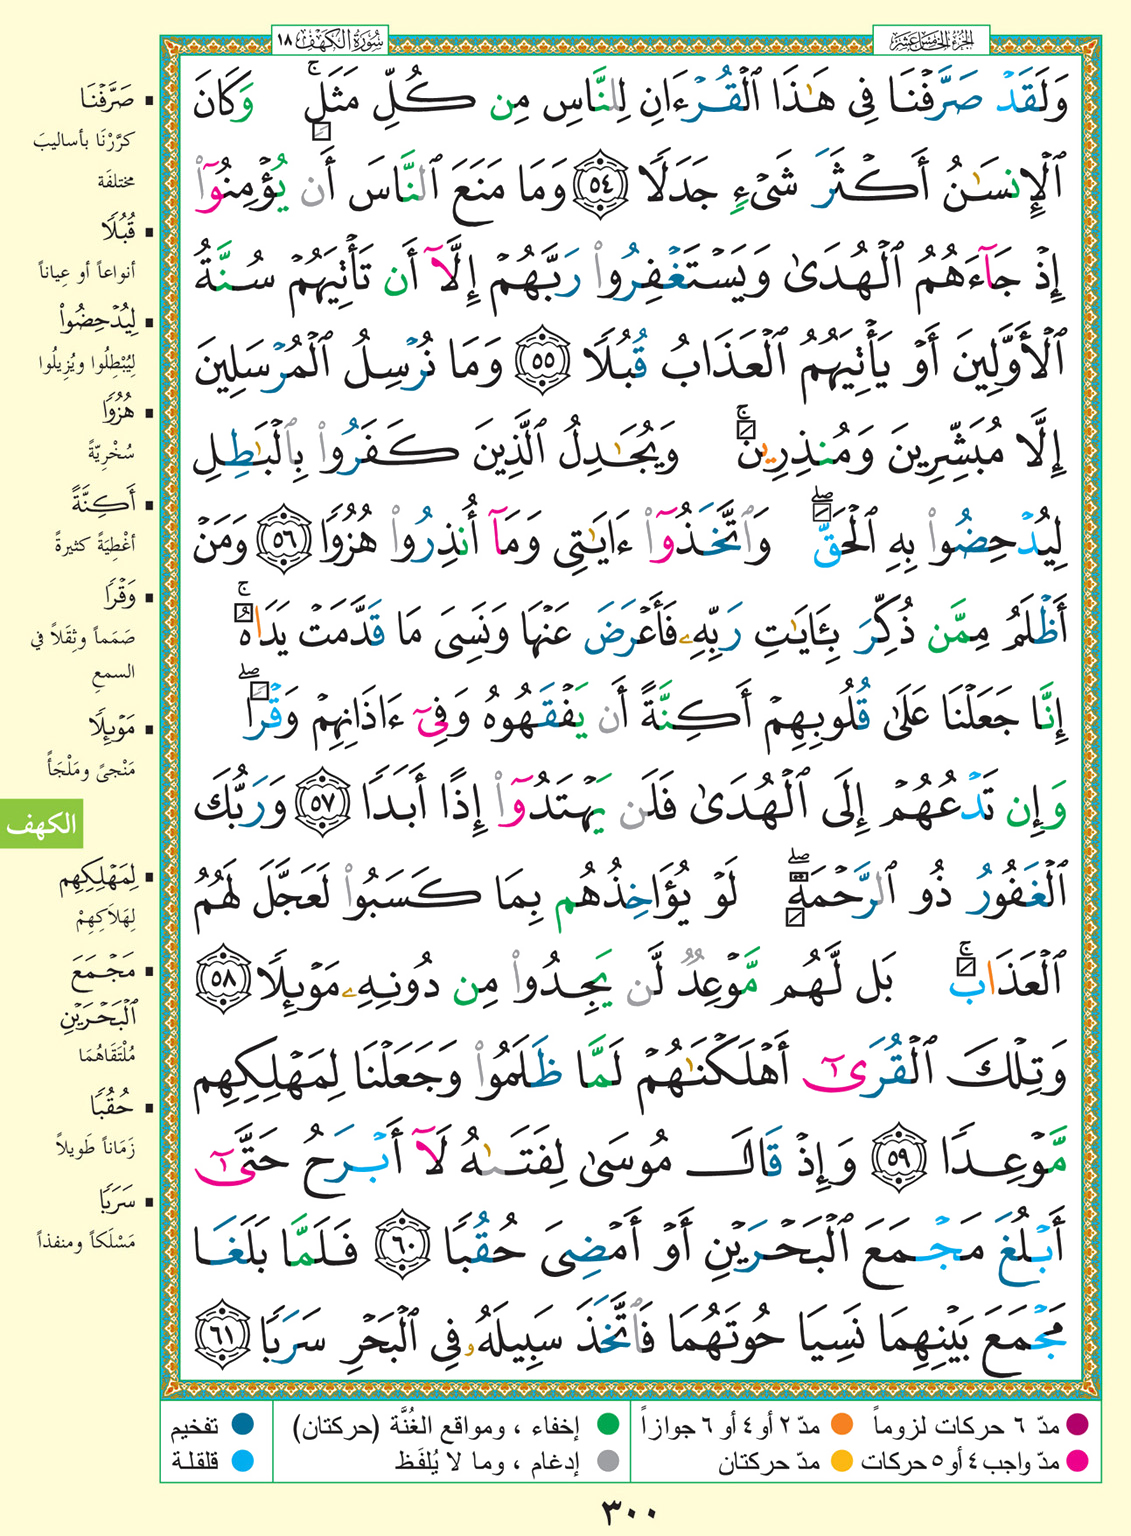 الجزء الخامس عشر
سورة الكهف ١٨
وَلَقَدْ صَرَّفْنَا فِى هَـٰذَا ٱلْقُرْءَانِ لِلنَّاسِ مِن كُلِّ مَثَلٍ ۚ وَكَانَ
ٱلْإِنسَـٰنُ أَكْثَرَ شَىْءٍ جَدَلًا ٥٤ وَمَا مَنَعَ ٱلنَّاسَ أَن يُؤْمِنُوٓا۟
إِذْ جَآءَهُمُ ٱلْهُدَىٰ وَيَسْتَغْفِرُوا۟ رَبَّهُمْ إِلَّآ أَن تَأْتِيَهُمْ سُنَّةُ
ٱلْأَوَّلِينَ أَوْ يَأْتِيَهُمُ ٱلْعَذَابُ قُبُلًا ٥٥ وَمَا نُرْسِلُ ٱلْمُرْسَلِينَ
إِلَّا مُبَشِّرِينَ وَمُنذِرِينَ ۚ وَيُجَـٰدِلُ ٱلَّذِينَ كَفَرُوا۟ بِٱلْبَـٰطِلِ
لِيُدْحِضُوا۟ بِهِ ٱلْحَقَّ ۖ وَٱتَّخَذُوٓا۟ ءَايَـٰتِى وَمَآ أُنذِرُوا۟ هُزُوًا ٥٦ وَمَنْ
أَظْلَمُ مِمَّن ذُكِّرَ بِـَٔايَـٰتِ رَبِّهِۦ فَأَعْرَضَ عَنْهَا وَنَسِىَ مَا قَدَّمَتْ يَدَاهُ ۚ
إِنَّا جَعَلْنَا عَلَىٰ قُلُوبِهِمْ أَكِنَّةً أَن يَفْقَهُوهُ وَفِىٓ ءَاذَانِهِمْ وَقْرًا ۖ
وَإِن تَدْعُهُمْ إِلَى ٱلْهُدَىٰ فَلَن يَهْتَدُوٓا۟ إِذًا أَبَدًا ٥٧ وَرَبُّكَ
ٱلْغَفُورُ ذُو ٱلرَّحْمَةِ ۖ لَوْ يُؤَاخِذُهُم بِمَا كَسَبُوا۟ لَعَجَّلَ لَهُمُ
ٱلْعَذَابَ ۚ بَل لَّهُم مَّوْعِدٌ لَّن يَجِدُوا۟ مِن دُونِهِۦ مَوْئِلًا ٥٨
وَتِلْكَ ٱلْقُرَىٰٓ أَهْلَكْنَـٰهُمْ لَمَّا ظَلَمُوا۟ وَجَعَلْنَا لِمَهْلِكِهِم
مَّوْعِدًا ٥٩ وَإِذْ قَالَ مُوسَىٰ لِفَتَىٰهُ لَآ أَبْرَحُ حَتَّىٰٓ
أَبْلُغَ مَجْمَعَ ٱلْبَحْرَيْنِ أَوْ أَمْضِىَ حُقُبًا ٦٠ فَلَمَّا بَلَغَا
مَجْمَعَ بَيْنِهِمَا نَسِيَا حُوتَهُمَا فَٱتَّخَذَ سَبِيلَهُۥ فِى ٱلْبَحْرِ سَرَبًا ٦١
▪ صَرَّفْنَا
كَرَّرْنَا بأساليبَ
مختلفَة
▪ قُبُلًا
أنواعاً أو عِياناً
▪ لِيُدْحِضُوا۟
لِيُبْطِلُوا ويُزِيلُوا
▪ هُزُوًا
سُخْرِيّةً
▪ أَكِنَّةً
أغْطِيَةً كثيرةً
▪ وَقْرًا
صَمَماً وثِقَلاً في
السمعِ
▪ مَوْئِلًا
مَنْجىً ومَلْجَأً
الكهف
▪ لِمَهْلِكِهِم
لِهَلاَكِهِمْ
▪ مَجْمَعَ
ٱلْبَحْرَيْنِ
مُلْتَقَاهُمَا
▪ حُقُبًا
زَمَاناً طَويلاً
▪ سَرَبًا
مَسْلَكاً ومنفذاً
مدّ ٦ حركات لزوماً
مدّ ٢ أو ٤ أو ٦ جوازاً
إخفاء ، ومواقع الغُنَّة (حركتان)
تفخيم
مدّ واجب ٤ أو ٥ حركات
مدّ حركتان
إدغام ، وما لا يُلفَظ
قلقلة
٣٠٠